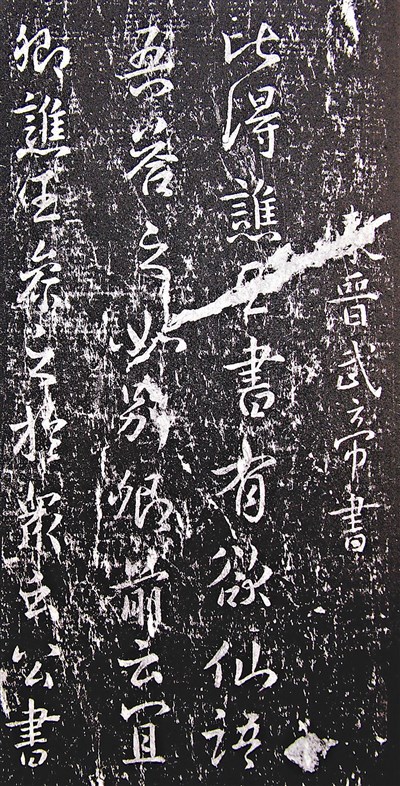 晉武帝書
比得譙王書有欲仙語
吾答之如別卿前云宜
卿譙王於眾公書